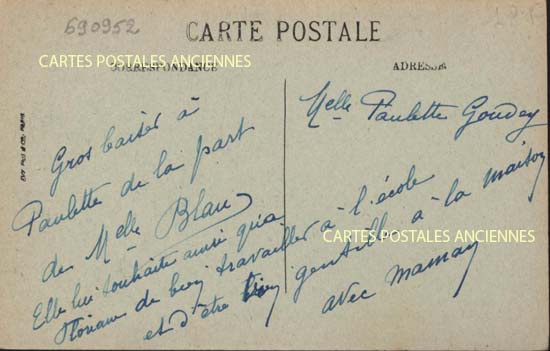 690952
CARTE POSTALE
CARTES POSTALES ANCIENNES
CORRESPONDANCE
ADRESSE
Melle Paulette Goudey
Gros baiser à
Paulette de la part
de Melle Blanc
Elle lui souhaite ainsi qu'a
de bien travailler à l'école
et d'être bien gentille à la maison
avec maman
CARTES POSTALES ANCIENNES